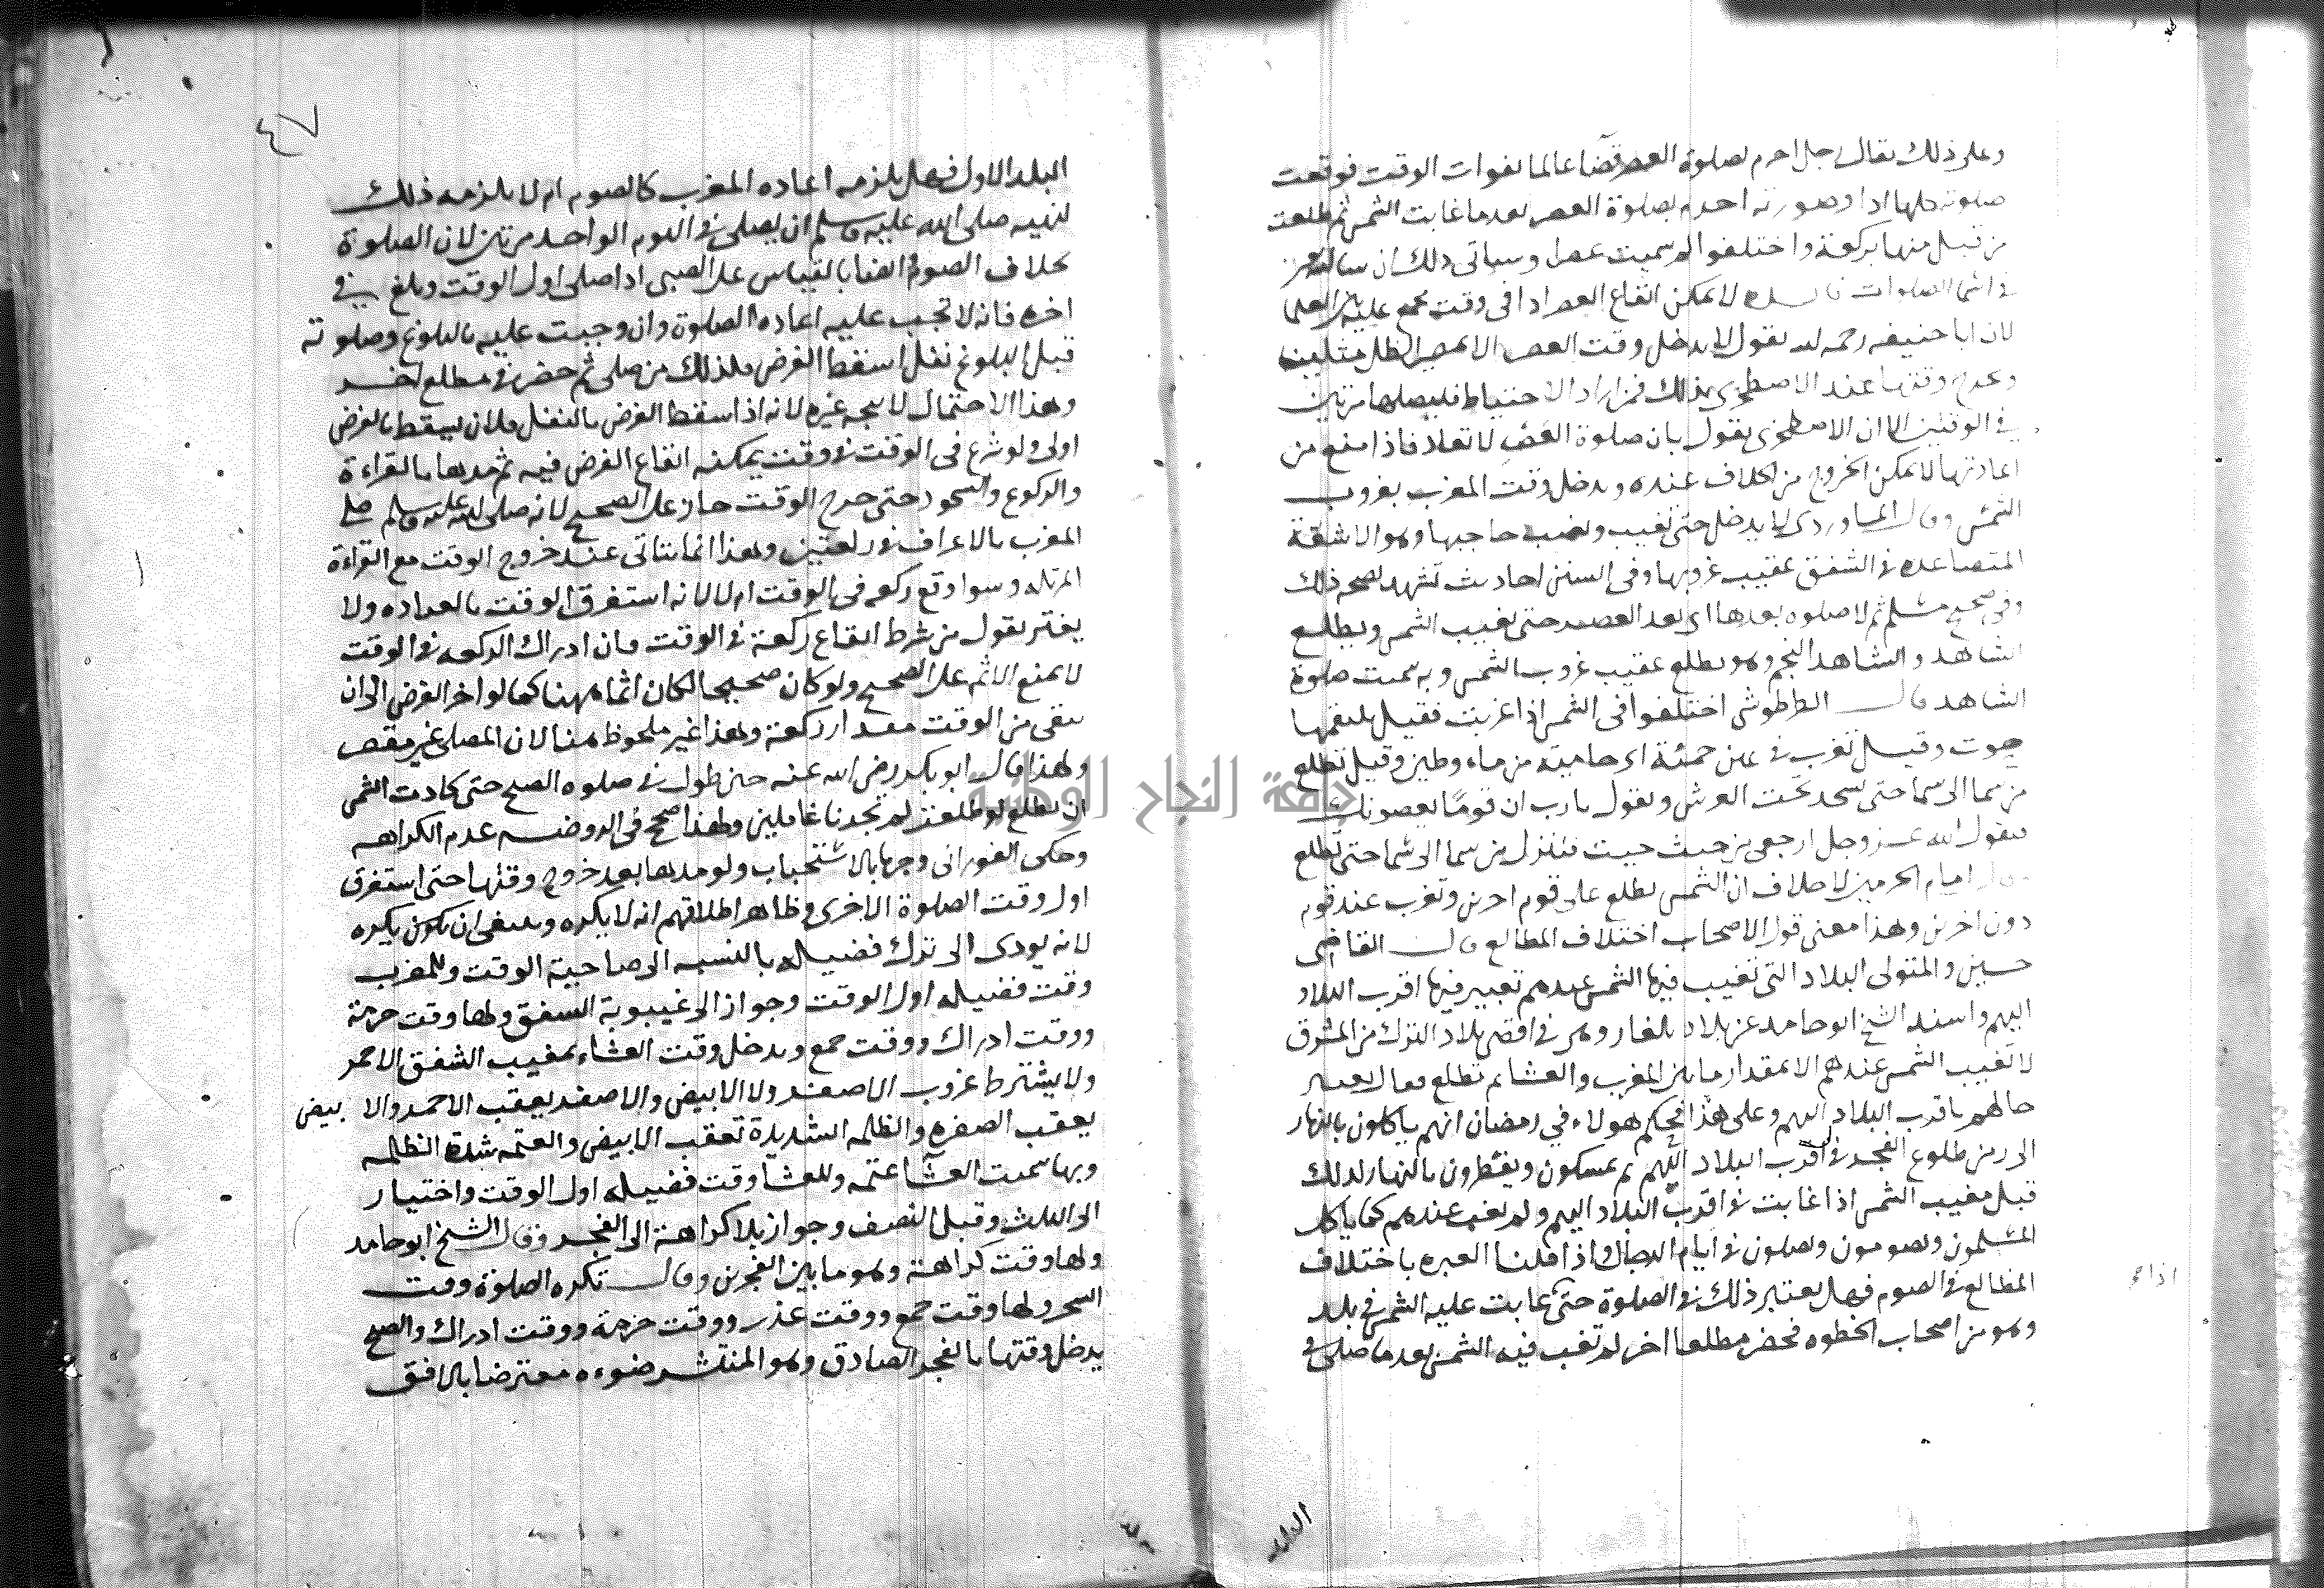 وعلى ذلك يقال رجل احرم بصلوة العصر قضا عالما بفوات الوقت فوقعت
صلوته كلها ادا وصورته احرم بصلوة العصر بعد ما غابت الشمس ثم طلعت
من قبل منها بركعة واختلفوا لم سميت عصرا وسياتى ذلك ان سا الله
فى اسما الصلوات لا يمكن ايقاع العصر ادا فى وقت مجمع عليه بين العلما
لان ابا حنيفه رحمه الله يقول لا يدخل وقت العصر الا بمصير الظل مثلين
وخرج وقتها عند الاصطخرى بذلك فمن اراد الاحتياط فليصلها مرتين
فى الوقتين الا ان الاصطخرى يقول بان صلوة العصر لا تعاد فاذا منع من
اعادتها لا يمكن الخروج من الخلاف عنده ويدخل وقت المغرب بغروب
الشمس وقال الماوردى لا يدخل حتى تغيب ويغيب حاجبها وهو الاشعة
المتصاعده فى الشفق عقيب غروبها وفى السنن احاديث تشهد لصحة ذلك
وفى صحيح مسلم ثم لا صلوه بعدها اى بعد العصر حتى تغيب الشمس ويطلع
الشاهد والشاهد النجم وهو يطلع عقيب غروب الشمس وبه سميت صلوة
الشاهد قال الطرطوشى اختلفوا فى الشمس اذا غربت فقيل يلتقمها
حوت وقيل تغرب فى عين حمئة اى حامية من ماء وطين وقيل تطلع
من سما الى سما حتى تسجد تحت العرش وتقول يا رب ان قومًا يعصونك
فيقول الله عز وجل ارجعى من حيث جيت فتنزل من سما الى سما حتى تطلع
قال امام الحرمين لا خلاف ان الشمس تطلع على قوم اخرين وتغرب عند قوم
دون اخرين وهذا معنى قول الاصحاب اختلاف المطالع قال القاضى
حسين والمتولى البلاد التى تغيب فيها الشمس عندهم تعتبر فيها اقرب البلاد
اليهم واسند الشيخ ابو حامد عن بلاد بلغار وهى فى اقصى بلاد الترك من المشرق
لا تغيب الشمس عندهم الا بمقدار ما بين المغرب والعشا ثم تطلع فقال يعتبر
حالهم باقرب البلاد اليهم وعلى هذا فحكم هولاء فى رمضان انهم ياكلون بالنهار
الى زمن طلوع الفجر فى اقرب البلاد اليهم ثم يمسكون ويفطرون بالنهار لذلك
قبل مغيب الشمس اذا غابت فى اقرب البلاد اليهم ولم تغب عندهم كما ياكل
المسلمون ويصومون ويصلون فى ايام الدجال واذا قلنا العبره باختلاف
المطالع فى الصوم فهل يعتبر ذلك فى الصلوة حتى غابت عليه الشمس فى بلد
وهو من اصحاب الخطوه فحضر مطلعا اخر لم تغب فيه الشمس بعد ما صلى فى
البلد
٤٧
البلد الاول فهل يلزمه اعاده المغرب كالصوم ام لا يلزمه ذلك
لنهيه صلى الله عليه وسلم ان يصلى فى اليوم الواحد مرتين لان الصلوة
بخلاف الصوم بالقياس على الصبى اذا صلى اول الوقت وبلغ فى
اخره فانه لا تجب عليه اعاده الصلوة وان وجبت عليه بالبلوغ وصلوته
قبل البلوغ نفل اسقط الفرض فلذلك من صلى ثم حضر فى مطلع اخر
وهذا الاحتمال لا يتجه غيره لانه اذا سقط الفرض بالنفل فلان يسقط بالفرض
اولى ولو شرع فى الوقت فى وقت يمكنه ايقاع الفرض فيه ثم مدها بالقراءة
والركوع والسجود حتى خرج الوقت جاز على الصحيح لانه صلى الله عليه وسلم صلى
المغرب بالاعراف فى ركعتين وهذا انما يتاتى عند خروج الوقت مع القراءة
المرتله وسوا وقع ركعه فى الوقت ام لا لانه استغرق الوقت بالعباده ولا
يغتر بقول من شرط ايقاع ركعة فى الوقت فان ادراك الركعه فى الوقت
لا يمنع الاثم على الصحيح ولو كان صحيحا لكان اثما هنا كما لو اخر الفرض الى ان
يبقى من الوقت مقدار ركعة وهذا غير ملحوظ هنا لان المصلى غير مقصر
ولهذا قال ابو بكر رضى الله عنه حين طول فى صلوه الصبح حتى كادت الشمس
ان تطلع لو طلعت لم تجدنا غافلين ولهذا صحح فى الروضه عدم الكراهه
وحكى الفورانى وجها بالاستحباب ولو مدها بعد خروج وقتها حتى استغرق
اول وقت الصلوة الاخرى فظاهر اطلاقهم انه لا يكره وينبغى ان يكون يكره
لانه يودى الى ترك فضيله بالنسبه الى صاحبة الوقت وللمغرب
وقت فضيله اول الوقت وجواز الى غيبوبة الشفق ولها وقت حرمة
ووقت ادراك ووقت جمع ويدخل وقت العشاء بمغيب الشفق الاحمر
ولا يشترط غروب الاصفر ولا الابيض والاصفر يعقب الاحمر والابيض
يعقب الصفره والظلمه الشديدة تعقب الابيض والعتمه شدة الظلمه
وبها سميت العشا عتمه وللعشا وقت فضيله اول الوقت واختيار
الى الثلث وقيل النصف وجواز بلا كراهة الى الفجر وقال الشيخ ابو حامد
ولها وقت كراهة وهو ما بين الفجرين وقال تكره الصلوة وقت
السحر ولها وقت جمع ووقت عذر ووقت حرمة ووقت ادراك والصبح
يدخل وقتها بالفجر الصادق وهو المنتشر ضوءه معترضا بالافق
جامعة النجاح الوطنية